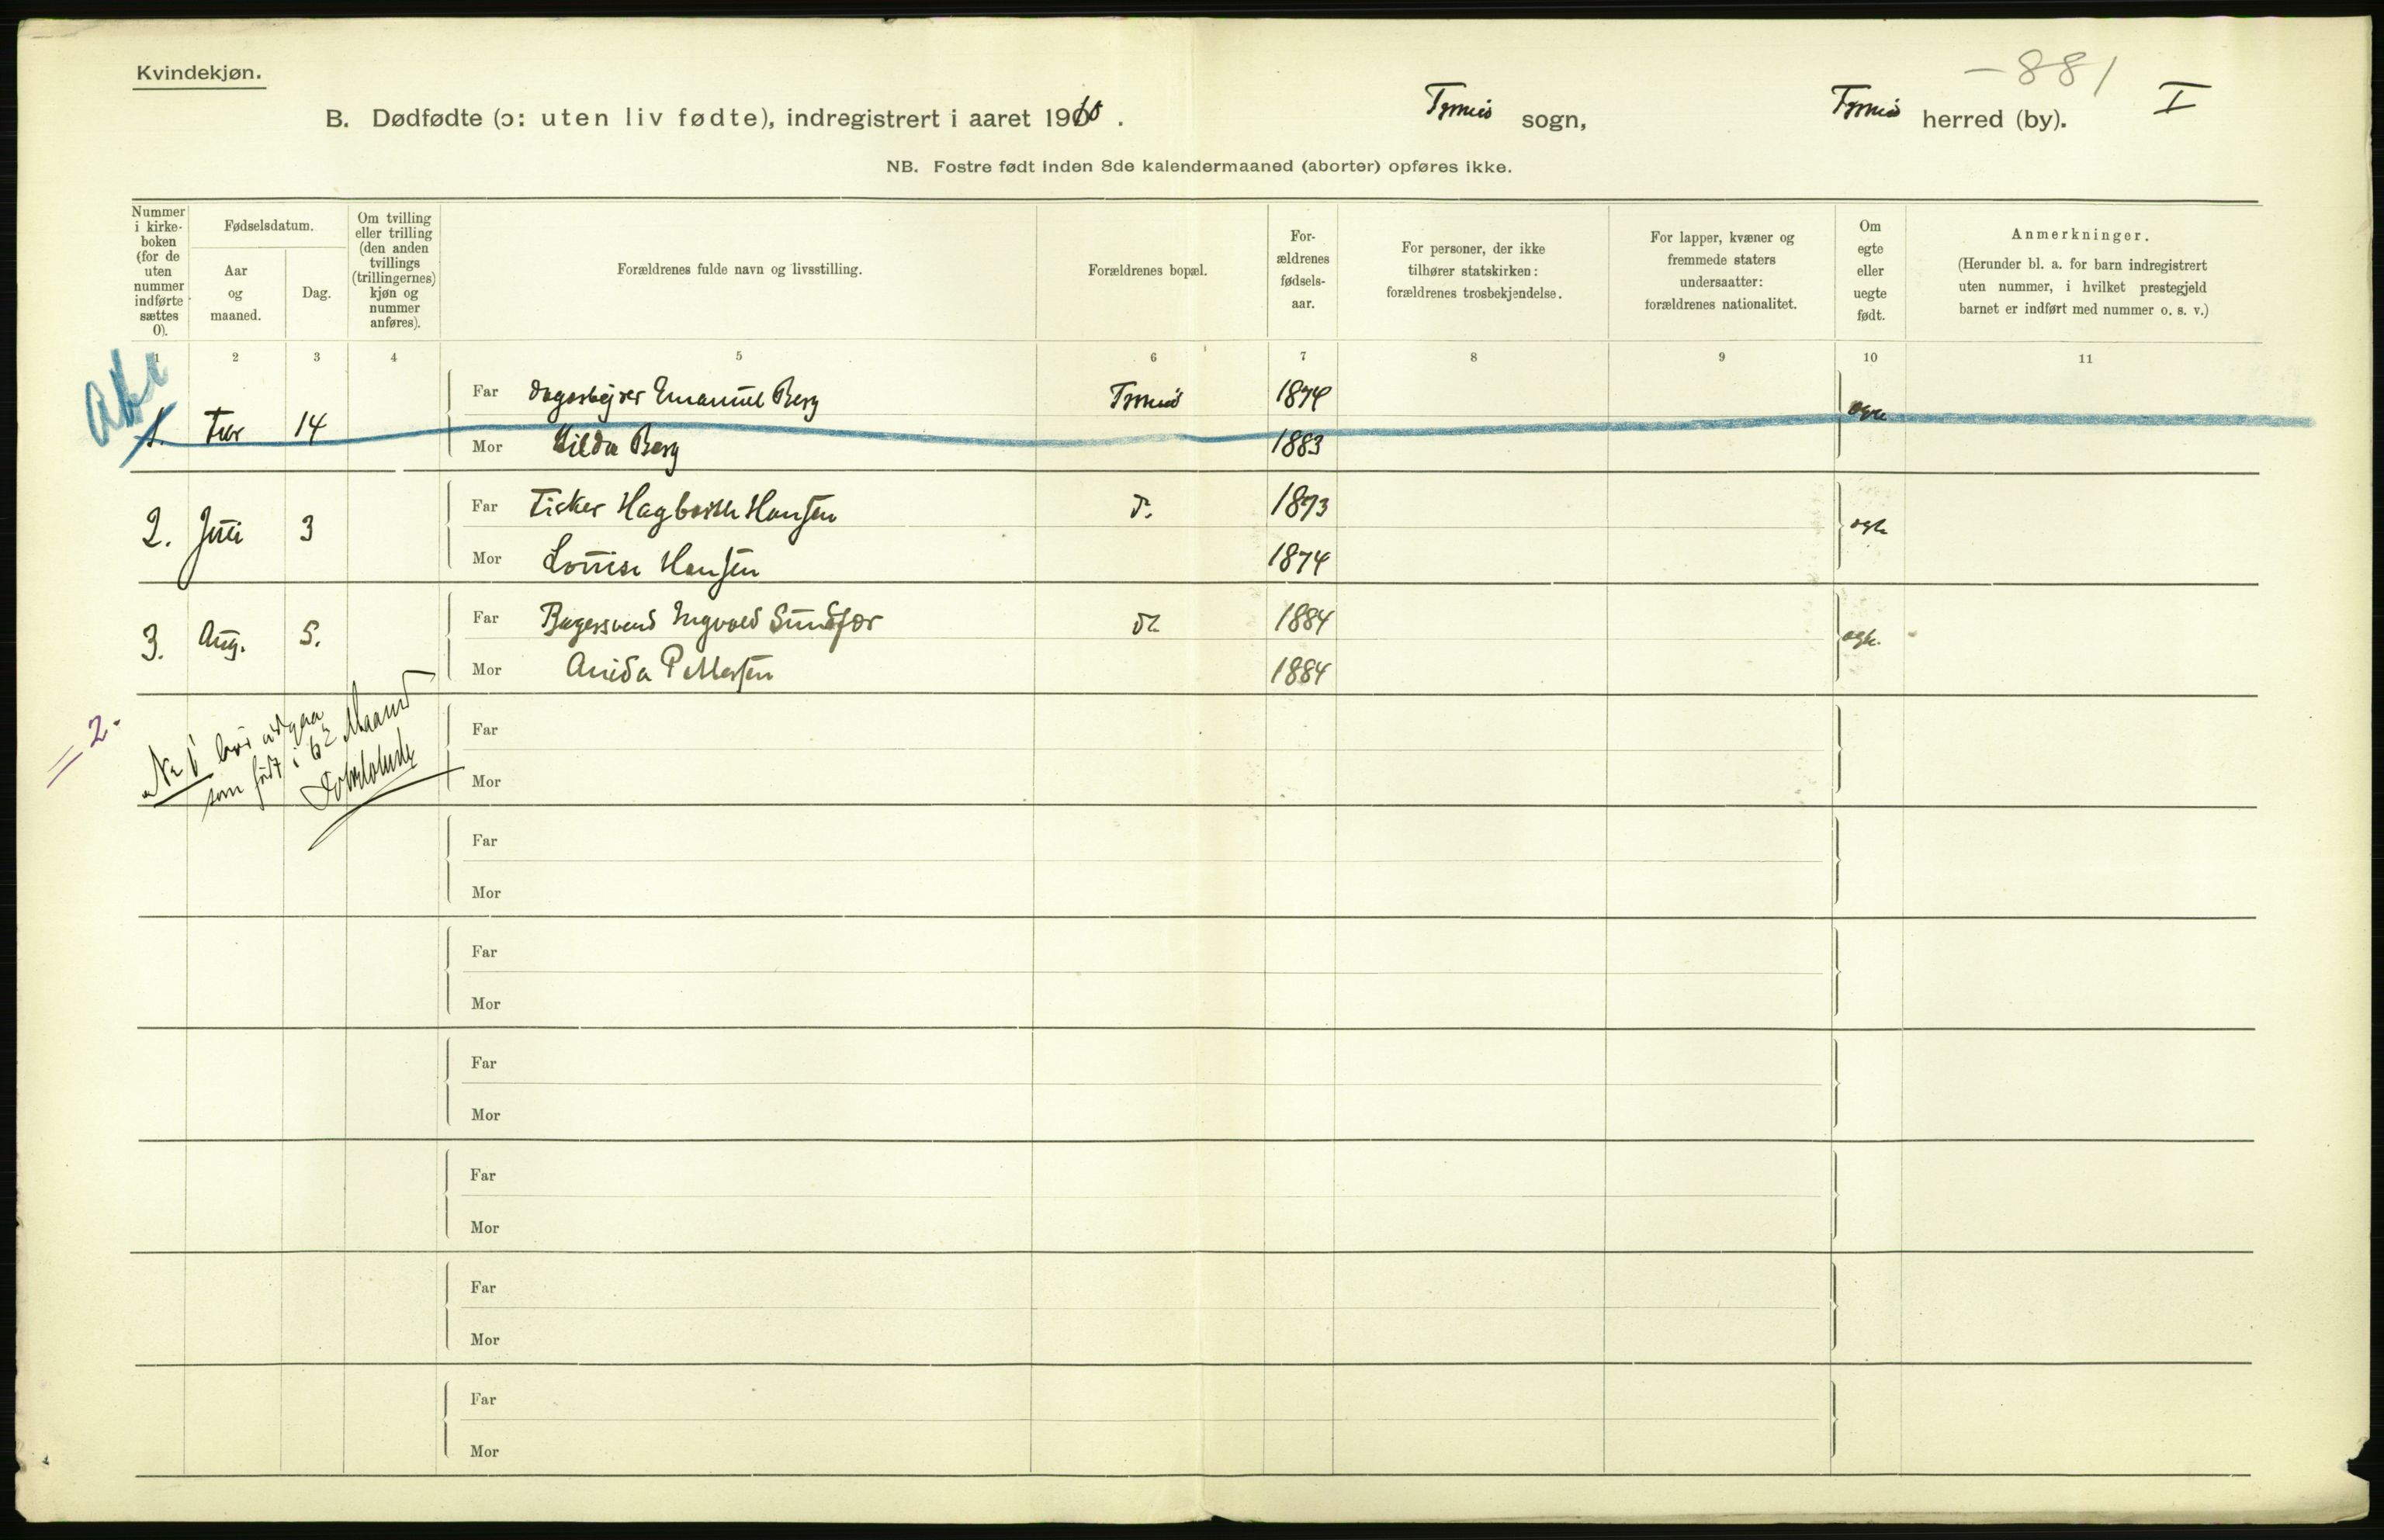 Kvindekjøn.
-881
B. Dødfødte (ɔ: uten liv fødte), indregistrert i aaret 1910. Tromsø sogn, Tromsø herred (by). I
NB. Fostre født inden 8de kalendermaaned (aborter) opføres ikke.
Nummer i kirke-boken (for de uten nummer indførte sættes 0).
Fødselsdatum.
Aar og maaned.
Dag.
Om tvilling eller trilling (den anden tvillings (trillingernes) kjøn og nummer anføres).
Forældrenes fulde navn og livsstilling.
Forældrenes bopæl.
For-ældrenes fødsels-aar.
For personer, der ikke tilhører statskirken: forældrenes trosbekjendelse.
For lapper, kvæner og fremmede staters undersaatter: forældrenes nationalitet.
Om egte eller uegte født.
Anmerkninger.
(Herunder bl. a. for barn indregistrert uten nummer, i hvilket prestegjeld barnet er indført med nummer o. s. v.)
1 2 3 4 5 6 7 8 9 10 11
1. Febr 14 Far Emanuel Berg Tromsø 1874 egte
Mor Hilda Berg 1883
2. Juli 3 Far Fisker Hagbarth Hansen do 1873 egte
Mor Lovise Hansen 1874
3. Aug. 5. Far Bagersvend Ingvald Sundfør do 1884 egte.
Mor Anida Pettersen 1884
= 2.
No 1 bør udgaa
som født i 6te Maaned
Far
Mor
Far
Mor
Far
Mor
Far
Mor
Far
Mor
Far
Mor
Far
Mor